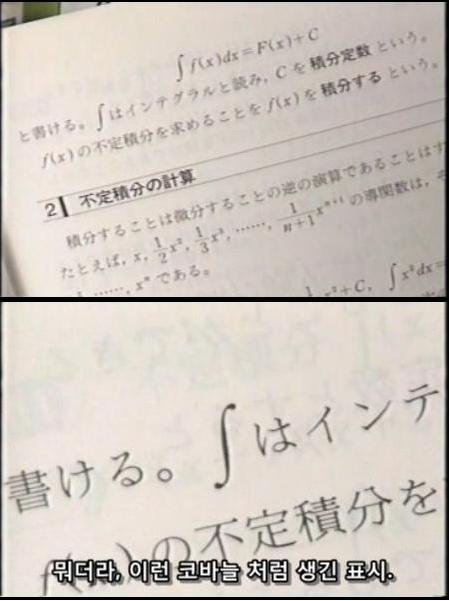 ∫f(x)dx=F(x)+C
と書ける。∫はインテグラルと読み，Cを積分定数という。
f(x)の不定積分を求めることをf(x)を積分するという。
2 不定積分の計算
積分することは微分することの逆の演算であることはす
たとえば，x，1/2x²，1/3x³，……，1/n+1 xⁿ⁺¹の導関数は，そ
……，xⁿである。
x²+C，∫x²dx=
書ける。∫はインテ
f(x)の不定積分を
뭐더라, 이런 코바늘 처럼 생긴 표시.